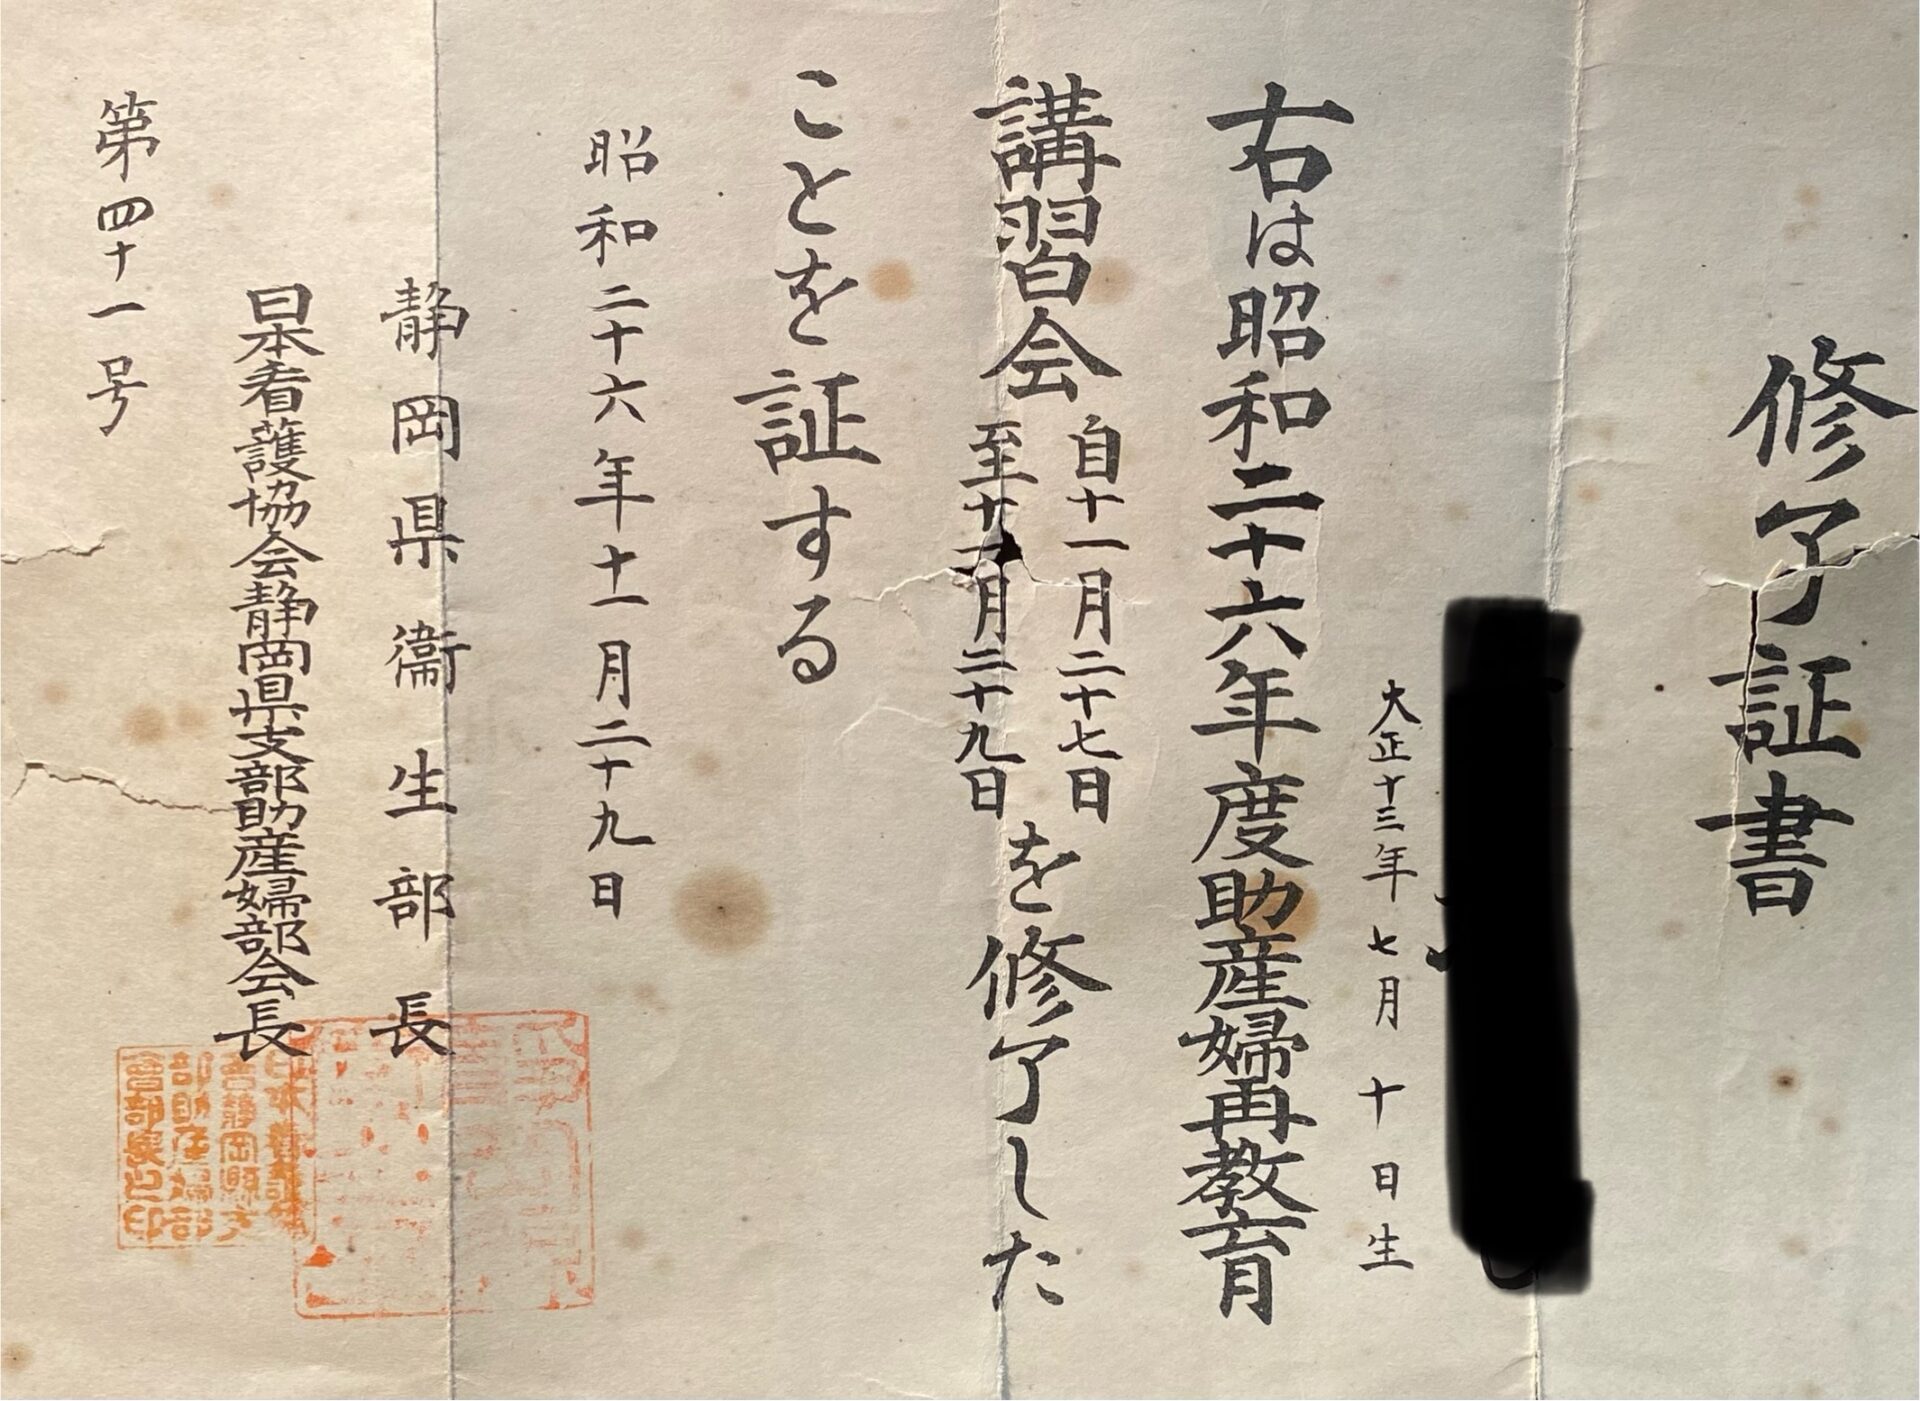 修了証書
大正十三年七月十日生
右は昭和二十六年度助産婦再教育
講習会自十一月二十七日至十一月二十九日を修了した
ことを証する
昭和二十六年十一月二十九日
静岡県衞生部長
日本看護協会静岡県支部助産婦部会長
第四十一号